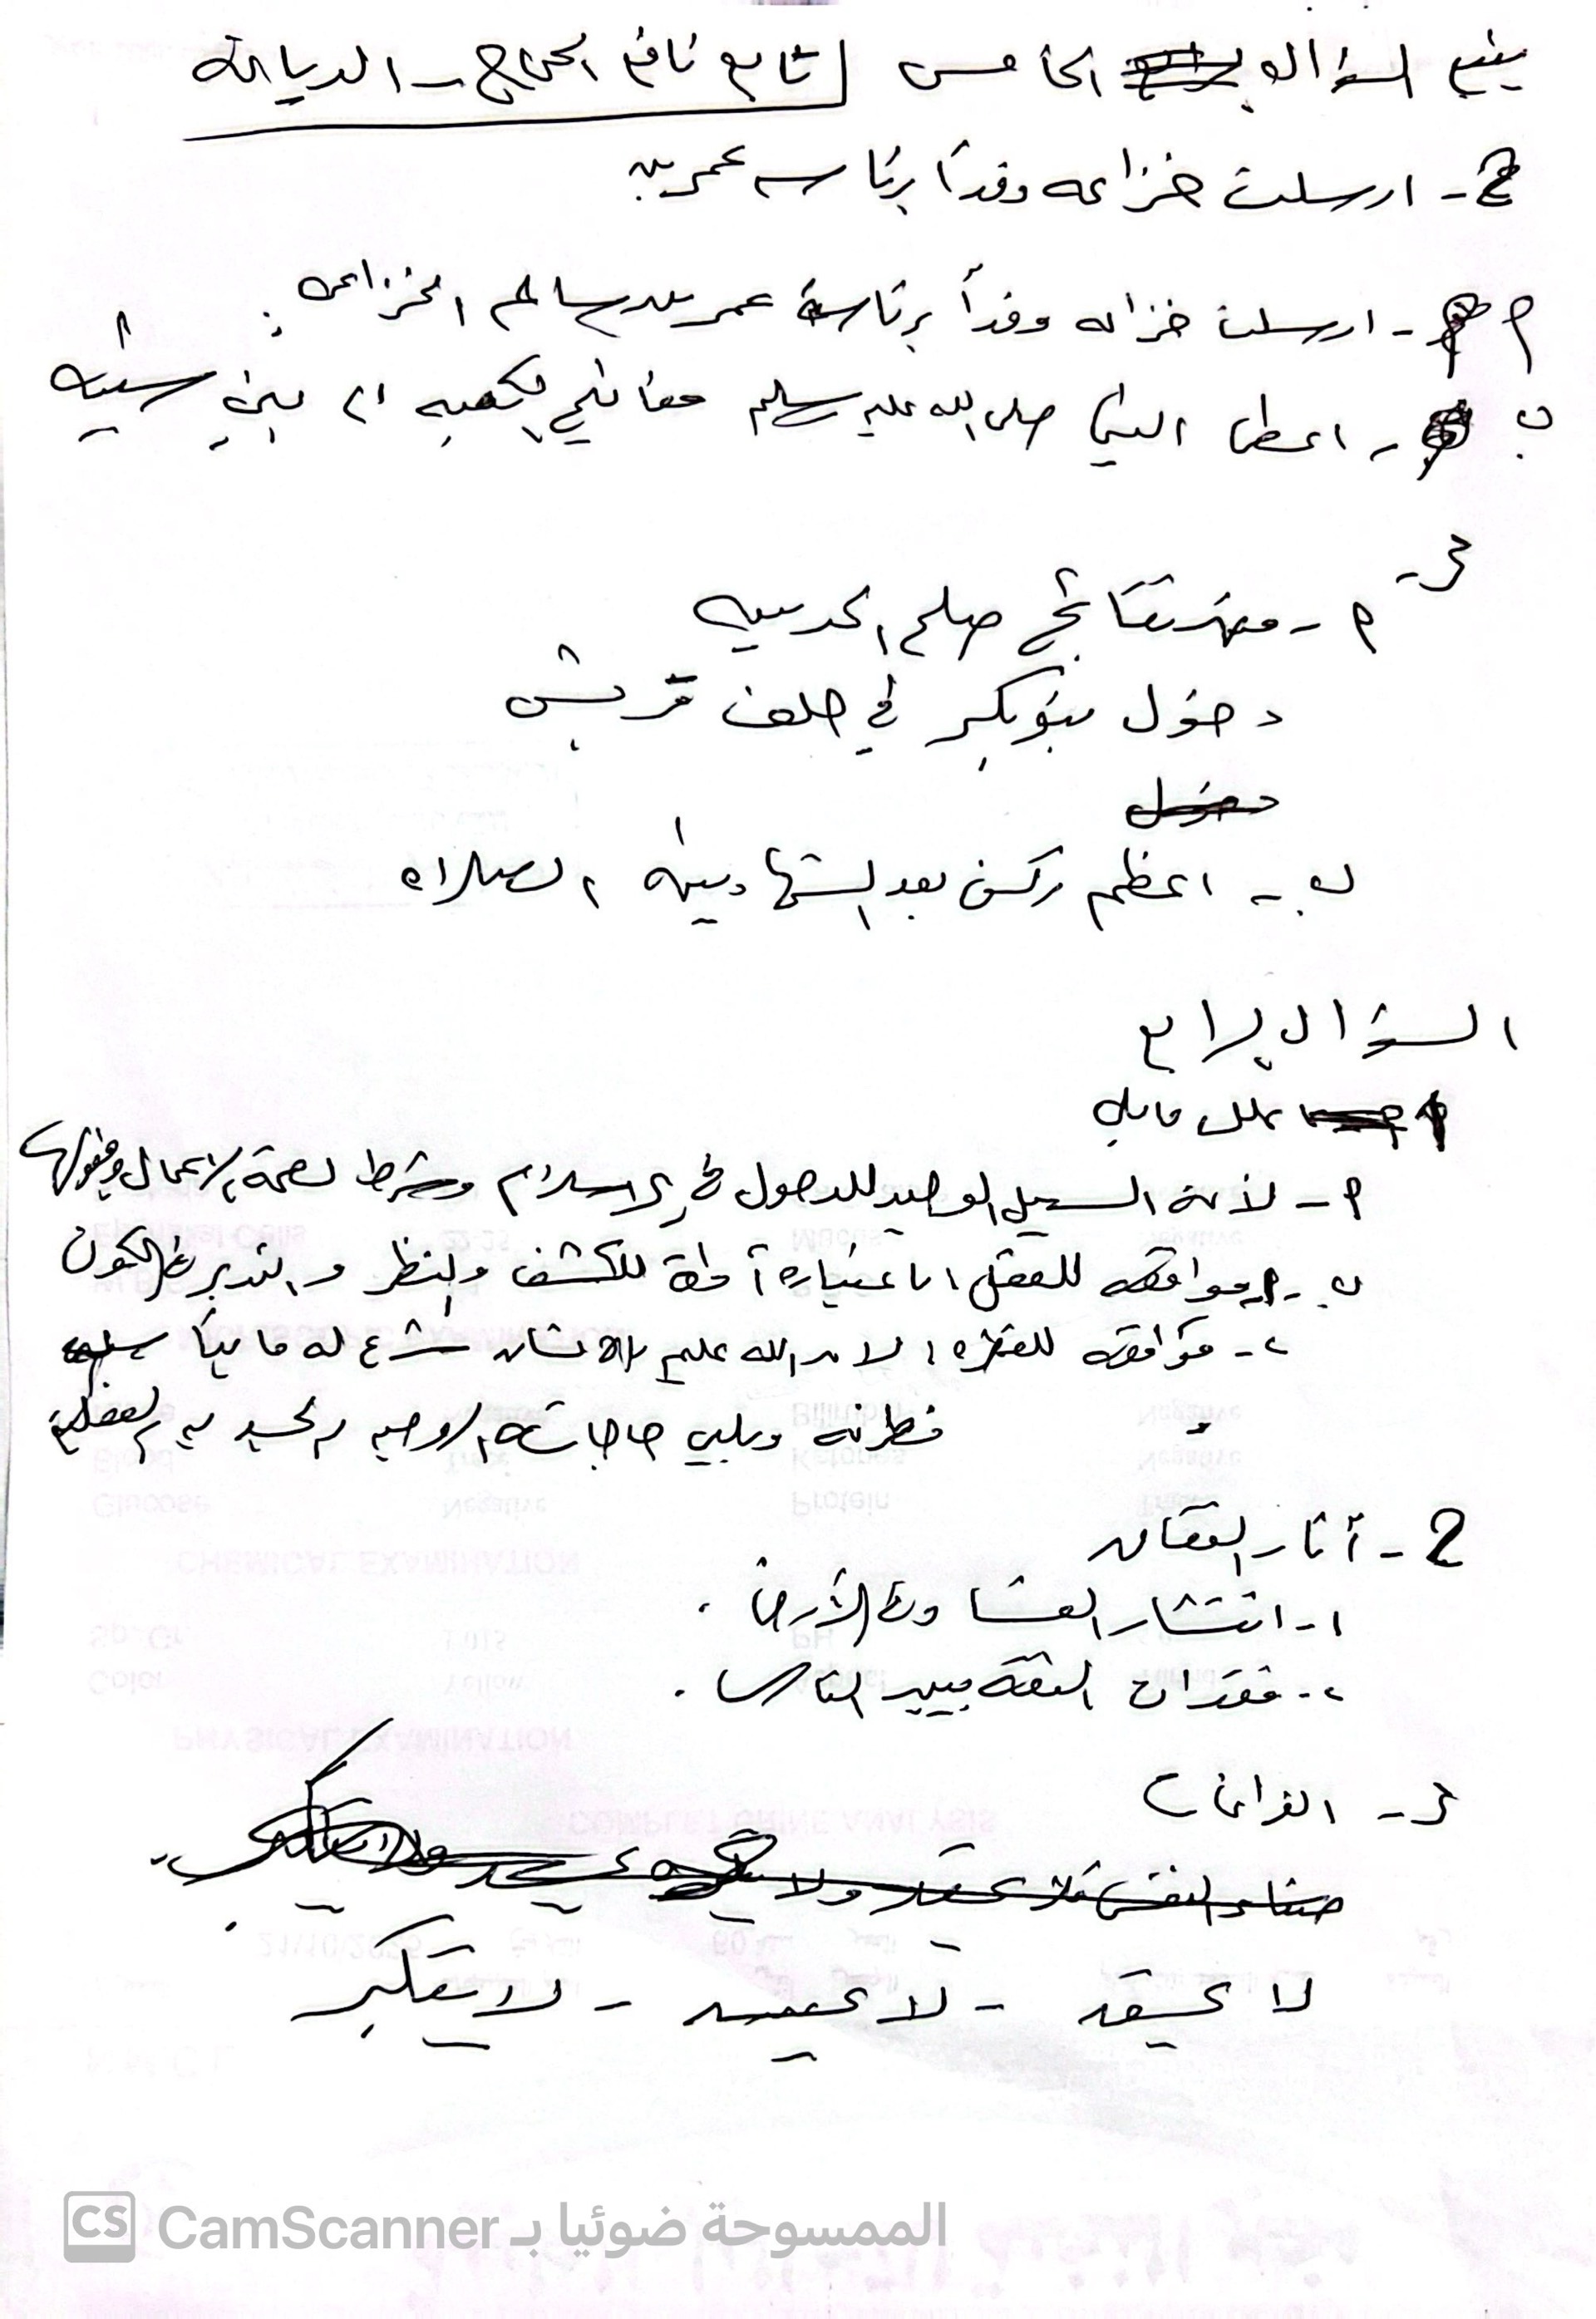 يتبع السؤال الخامس تابع نافع الحجاج - الديانة
2- ارسلت خزاعه وفداً برئاسه عمر بن
م - ارسلت خزاعه وفداً برئاسة عمر بن سالم الخزاعي
ب - اعطى النبي صلى الله عليه وسلم مفاتيح الكعبه الى بني شيبه
3-
م - من نتائج صلح الحديبيه
دخول بنو بكر في حلف قريش
دخول
ب - اعظم ركن بعد الشهادتين الصلاه
السؤال الرابع
علل مايلي
م - لأنه السبيل الوحيد للدخول في الاسلام وشرط لصحة الاعمال وقبولها
ب - 1- موافقته للعقل باعتباره أداة للكشف والنظر والتدبر في الكون
2- موافقته للفطره لان الله عليم بالانسان شرع له ما يناسب
فطرته ويلبي حاجاته الروحيه والجسديه والعقلية
2 - آثار النفاق
1- انتشار الفساد في الأرض .
2- فقدان الثقة بين الناس .
3 - الفراغات
لا يحقد - لا يحسد - لا يتكبر
CS CamScanner الممسوحة ضوئيا بـ